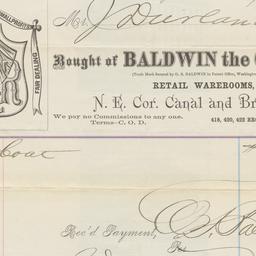 Mr. J Durlan
SMALL PROFITS
FAIR DEALING
Bought of BALDWIN the C
(Trade Mark Secured by O. S. BALDWIN in Patent Office, Washington
RETAIL WAREROOMS,
N. E. Cor. Canal and Br
We po no Commissions to any one.
Terms-C. O. D.
418, 420, 422 BRO
Coat
Rec'd Payment,
For